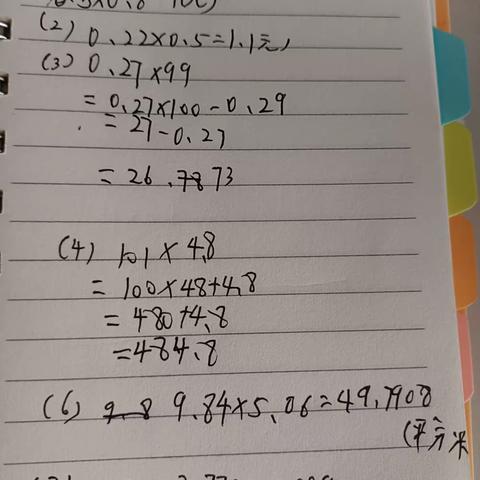 (2) 0.22×0.5=1.1元
(3) 0.27×99
= 0.27×100-0.29
= 27-0.27
= 26.7873
(4) 101×4.8
= 100×48+4.8
= 480+4.8
=484.8
(6) 9.8 9.84×5.06=49.7908
(平方米